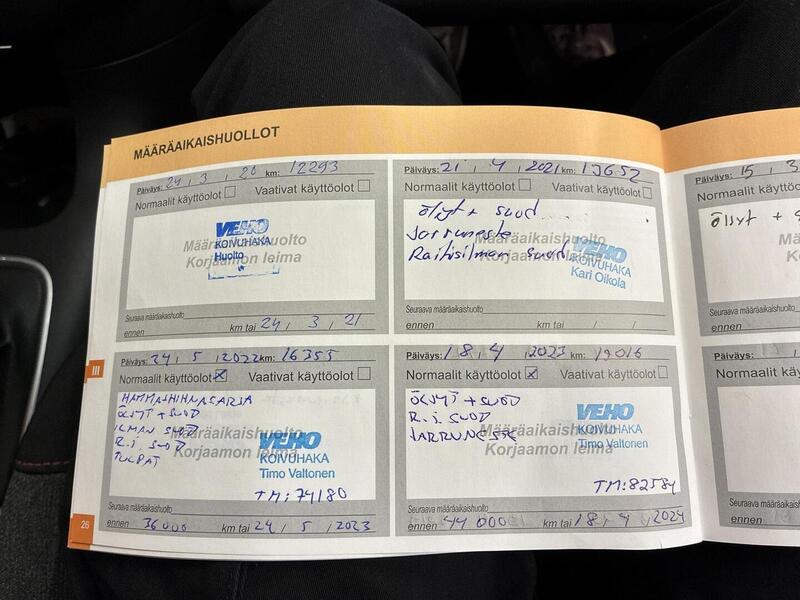 MÄÄRÄAIKAISHUOLLOT
Päiväys: 24 , 3 , 20 km: 12293
Normaalit käyttöolot Vaativat käyttöolot
VEHO
KOIVUHAKA
Huolto
Määräaikaishuolto
Korjaamon leima
Seuraava määräaikaishuolto
ennen km tai 24 , 3 , 21
Päiväys: 21 , 4 , 2021 km:
Normaalit käyttöolot Vaativat käyttöolot
Öljyt + suod
Jarruneste
Raitisilman suod
Määräaikaishuolto
Korjaamon leima
VEHO
KOIVUHAKA
Kari Oikola
Seuraava määräaikaishuolto
ennen km tai / /
Päiväys: 24 , 5 , 2022 km: 16355
Normaalit käyttöolot Vaativat käyttöolot
HAMMASHIHNASARJA
ÖLJYT + SUOD
ILMAN SUOD
R.I. SUOD
TULPAT
Määräaikaishuolto
Korjaamon leima
VEHO
KOIVUHAKA
Timo Valtonen
TM: 74180
Seuraava määräaikaishuolto
ennen 36000 km tai 24 , 5 , 2023
Päiväys: 18 , 4 , 2023 km: 19016
Normaalit käyttöolot Vaativat käyttöolot
ÖLJYT + SUOD
R.I. SUOD
JARRUNESTE
Määräaikaishuolto
Korjaamon leima
VEHO
KOIVUHAKA
Timo Valtonen
TM: 82584
Seuraava määräaikaishuolto
ennen 44000 km tai 18 , 4 , 2024
III
26
Päiväys: 15 , 3
Normaalit käyttöolot
Öljyt +
Seuraava määräaikaishuolto
ennen
Päiväys:
Normaalit käyttöolot
Seuraava määräaikaishuolto
ennen